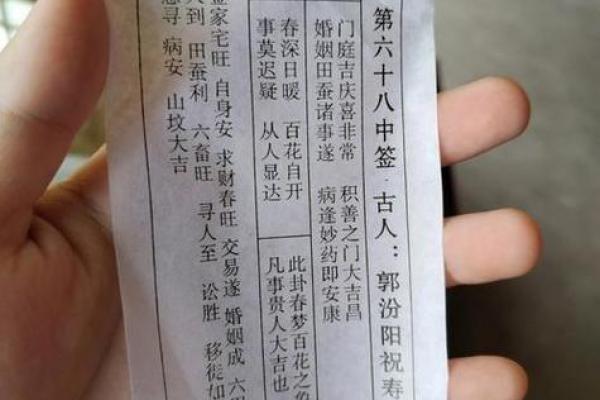 第六十八中签·古人：郭汾阳祝寿
门庭吉庆喜非常 积善之门大吉昌
婚姻田蚕诸事遂 病逢妙药即安康
春深日暖 百花自开
事莫迟疑 从人显达
此卦春梦百花之象
凡事贵人大吉也
家宅旺 自身安 求财春旺 交易遂 婚姻成 六
人到 田蚕利 六畜旺 寻人至 讼胜 移徙如
寻 病安 山坟大吉